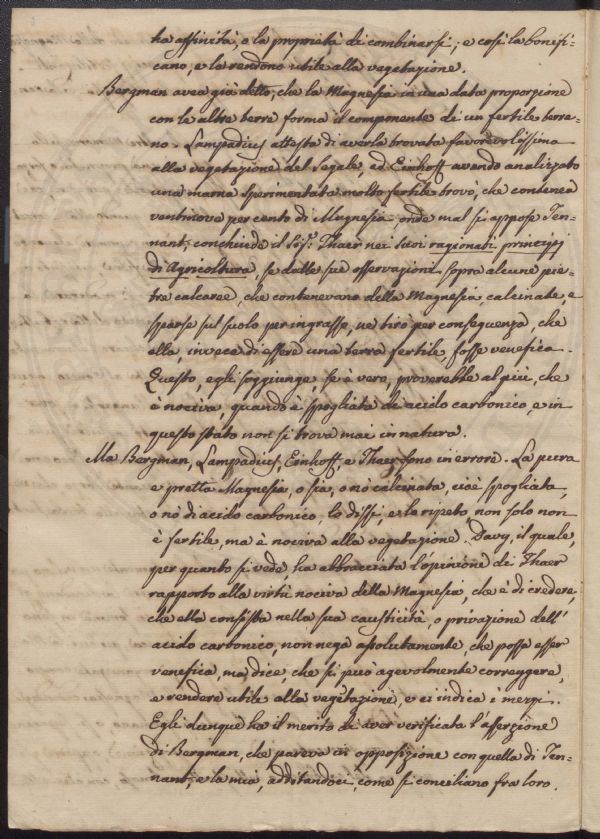 ha affinità, o la proprietà di combinarsi; e così la bonifi-
cano, e la rendono utile alla vegetazione.
Bergman avea già detto, che la Magnesia in una data proporzione
con le altre terre forma il componente di un fertile terre-
no. Lampadius attesta di averla trovata favorevolissima
alla vegetazione del Segale, ed Einhoff avendo analizzato
una marna sperimentata molto fertile trovò, che contenea
ventinove per cento di Magnesia; onde mal si appose Ten-
nant, conchiude il Sig.r Thaer nei suoi ragionati principj
di Agricoltura, se dalle sue osservazioni sopra alcune pie-
tre calcaree, che contenevano della Magnesia, calcinate, e
sparse sul suolo per ingrasso, ne tirò per conseguenza, che
ella, invece di essere una terra fertile, fosse venefica.
Questo, egli soggiunge, se è vero, proverebbe al più, che
è nociva, quando è spogliata di acido carbonico, e in
questo stato non si trova mai in natura.
Ma Bergman, Lampadius, Einhoff, e Thaer sono in errore. La pura
e pretta Magnesia, o sia, o nò calcinata, cioè spogliata,
o nò di acido carbonico, lo dissi, e lo ripeto non solo non
è fertile, ma è nociva alla vegetazione. Davy, il quale,
per quanto si vede, ha abbracciata l'opinione di Thaer
rapporto alla virtù nociva della Magnesia, che è di credere,
che ella consista nella sua causticità, o privazione dell'
acido carbonico, non nega assolutamente, che possa esser
venefica, ma dice, che si può agevolmente correggere,
e rendere utile alla vegetazione, e ci indica i mezzi.
Egli dunque ha il merito di aver verificata l'asserzione
di Bergman, che pareva in opposizione con quella di Ten-
nant, e la mia, additandoci, come si conciliano fra loro.